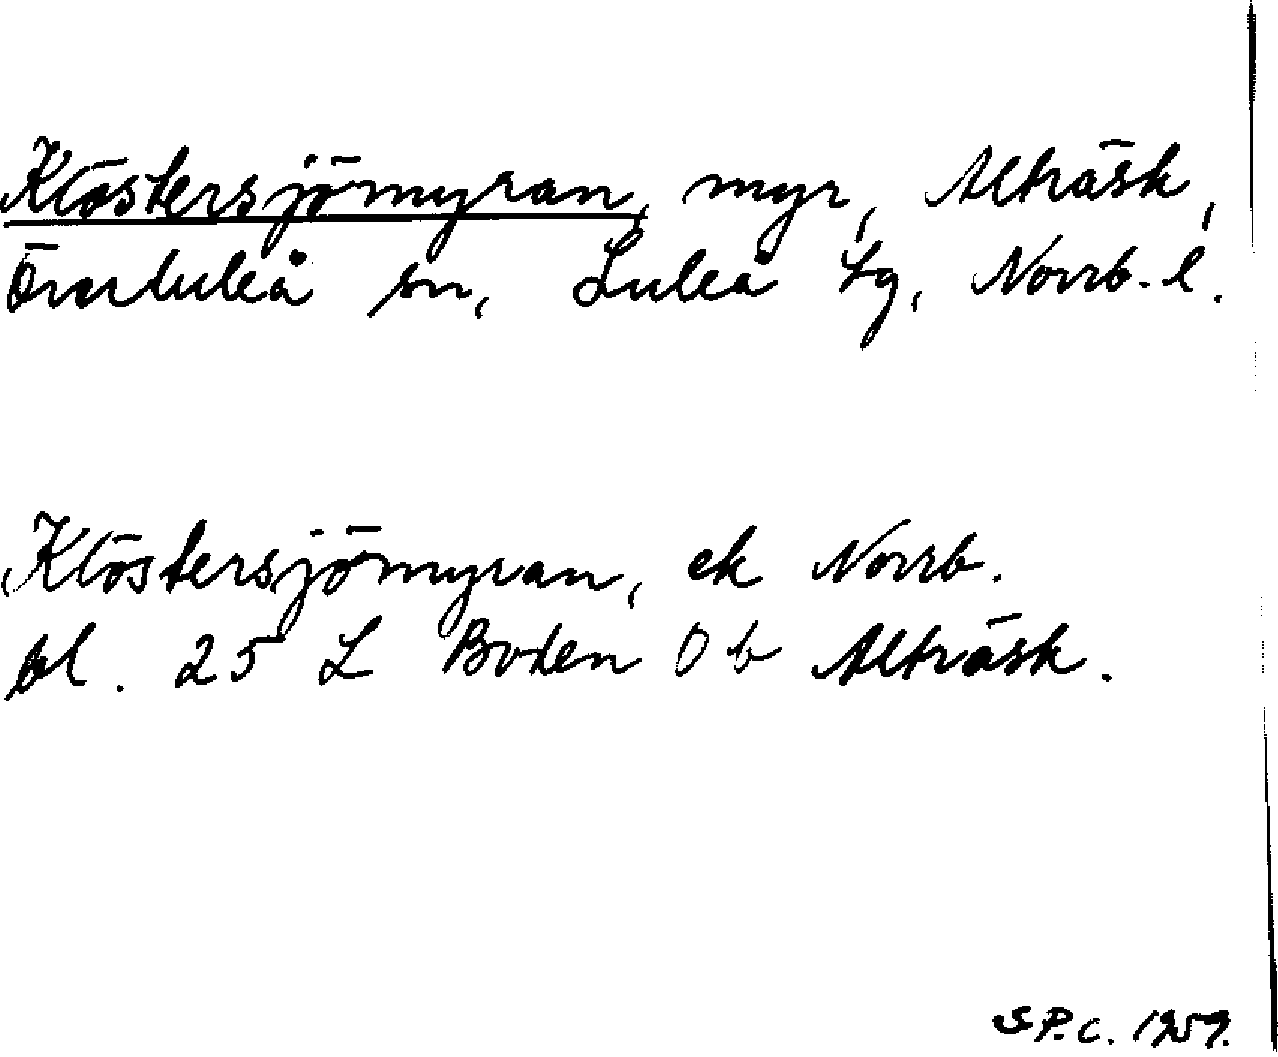 Klöstersjömyran, myr, Alträsk,
Överluleå sn, Luleå tg, Norrb. l.
Klöstersjömyran, ek Norrb.
bl. 25 L Boden 0 b Alträsk.
S.P.C. 1959.